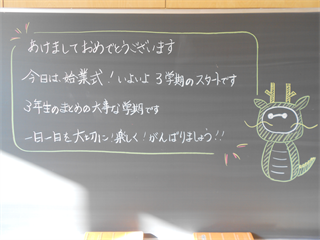 あけましておめでとうございます
今日は、始業式！いよいよ3学期のスタートです
3年生のまとめの大事な学期です
一日一日を大切に！楽しく！がんばりましょう！！